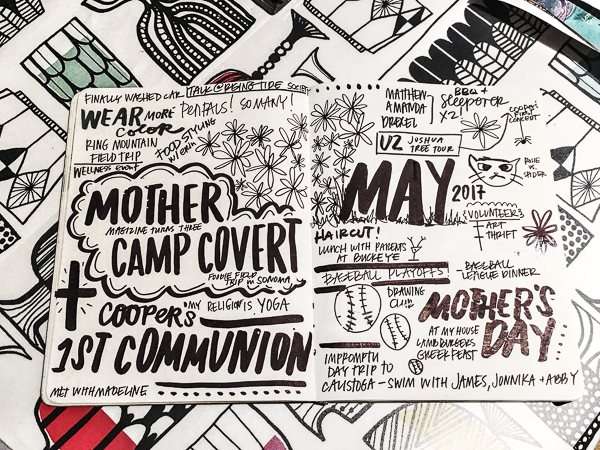 FINALLY WASHED CAR
TALK @ BEING TIDE SOCIETY
WEAR MORE
COLOR
RENTALS! SO MANY!
RING MOUNTAIN
FIELD TRIP
FOOD STYLING
W/ ERIN
WELLNESS EVENT
MOTHER
MAGAZINE TURNS THREE
CAMP COVERT
FOODIE FIELD
TRIP IN SONOMA
+ COOPERS
"MY RELIGION IS YOGA
1ST COMMUNION
MET WITH MADELINE
MATTHEW
AMANDA
DREXEL
BBQ +
SLEEPOVER
X2!
COOPER'S
FIRST
CAMPOUT
U2 JOSHUA
TREE TOUR
POLLIE
VS.
SPIDER
MAY 2017
VOLUNTEER
ART
THRIFT
HAIRCUT!
LUNCH WITH PARENTS
AT BUCKEYE
BASEBALL PLAYOFFS
- BASEBALL
LEAGUE DINNER
DRAWING
CLUB
MOTHER'S
DAY
AT MY HOUSE
LAMB BURGERS
GREEK FEAST
IMPROMPTU
DAY TRIP TO
CALISTOGA - SWIM WITH JAMES, JONNIKA + ABBY